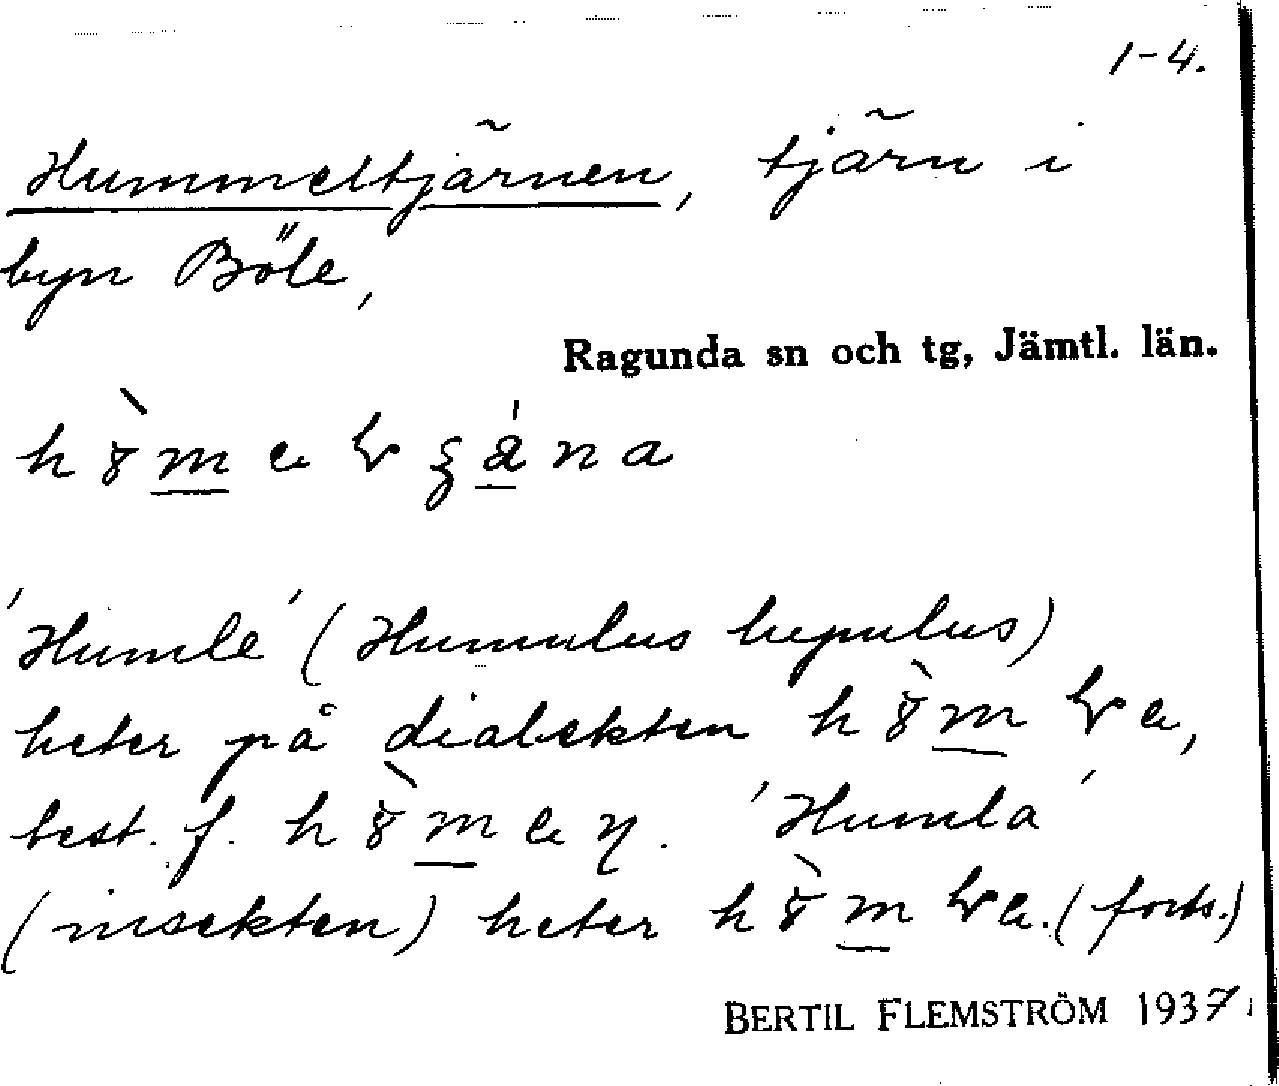 1-4.
Hummeltjärnen, tjärn i
byn Böle,
Ragunda sn och tg, Jämtl. län.
'Humle' (Humulus lupulus)
heter på dialekten
best. f. 'Humla'
(insekten) heter (forts.)
BERTIL FLEMSTRÖM 1937